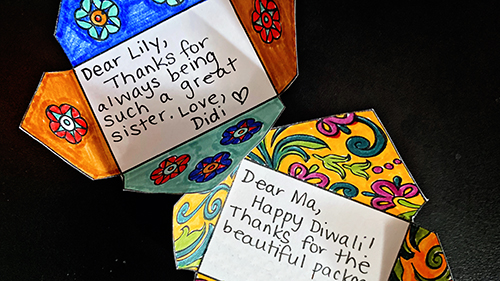 Dear Lily,
Thanks for
always being
such a great
sister. Love,
Didi ♡
Dear Ma,
Happy Diwali!
Thanks for the
beautiful